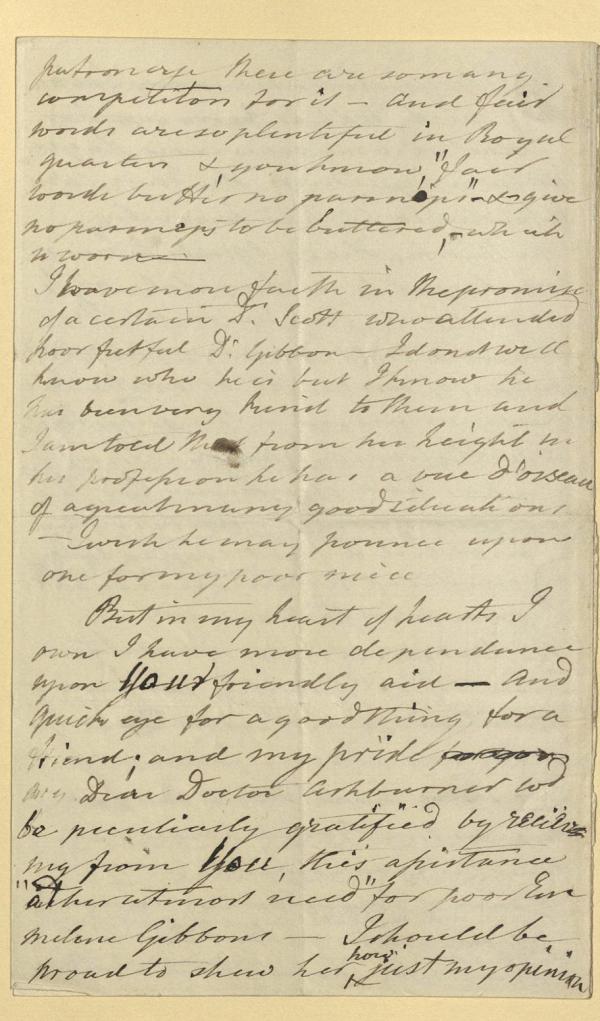 patronage there are so many
competitors for it – and fair
words are so plentiful in Royal
quarters & you know, "fair
words butter no parsneps" – & give
no parsneps to be buttered, – which
is worse –
I have more faith in the promise
of a certain Dr. Scott who attended
poor fretful Dr. Gibbon – I do not well
know who he is but I know he
has been very kind to them and
I am told that from his height in
his profession he has a vue d'oiseau
of a great many good situations
– I wish he may pounce upon
one for my poor niece
But in my heart of hearts I
own I have more dependence
upon Your friendly aid – And
quick eye for a good thing for a
friend; and my pride
my Dear Doctor Ashburner wd
be peculiarly gratified by receiv
ing from You, this assistance
"at her utmost need" for poor Em
melene Gibbons – I should be
proud to shew her how just my opinion